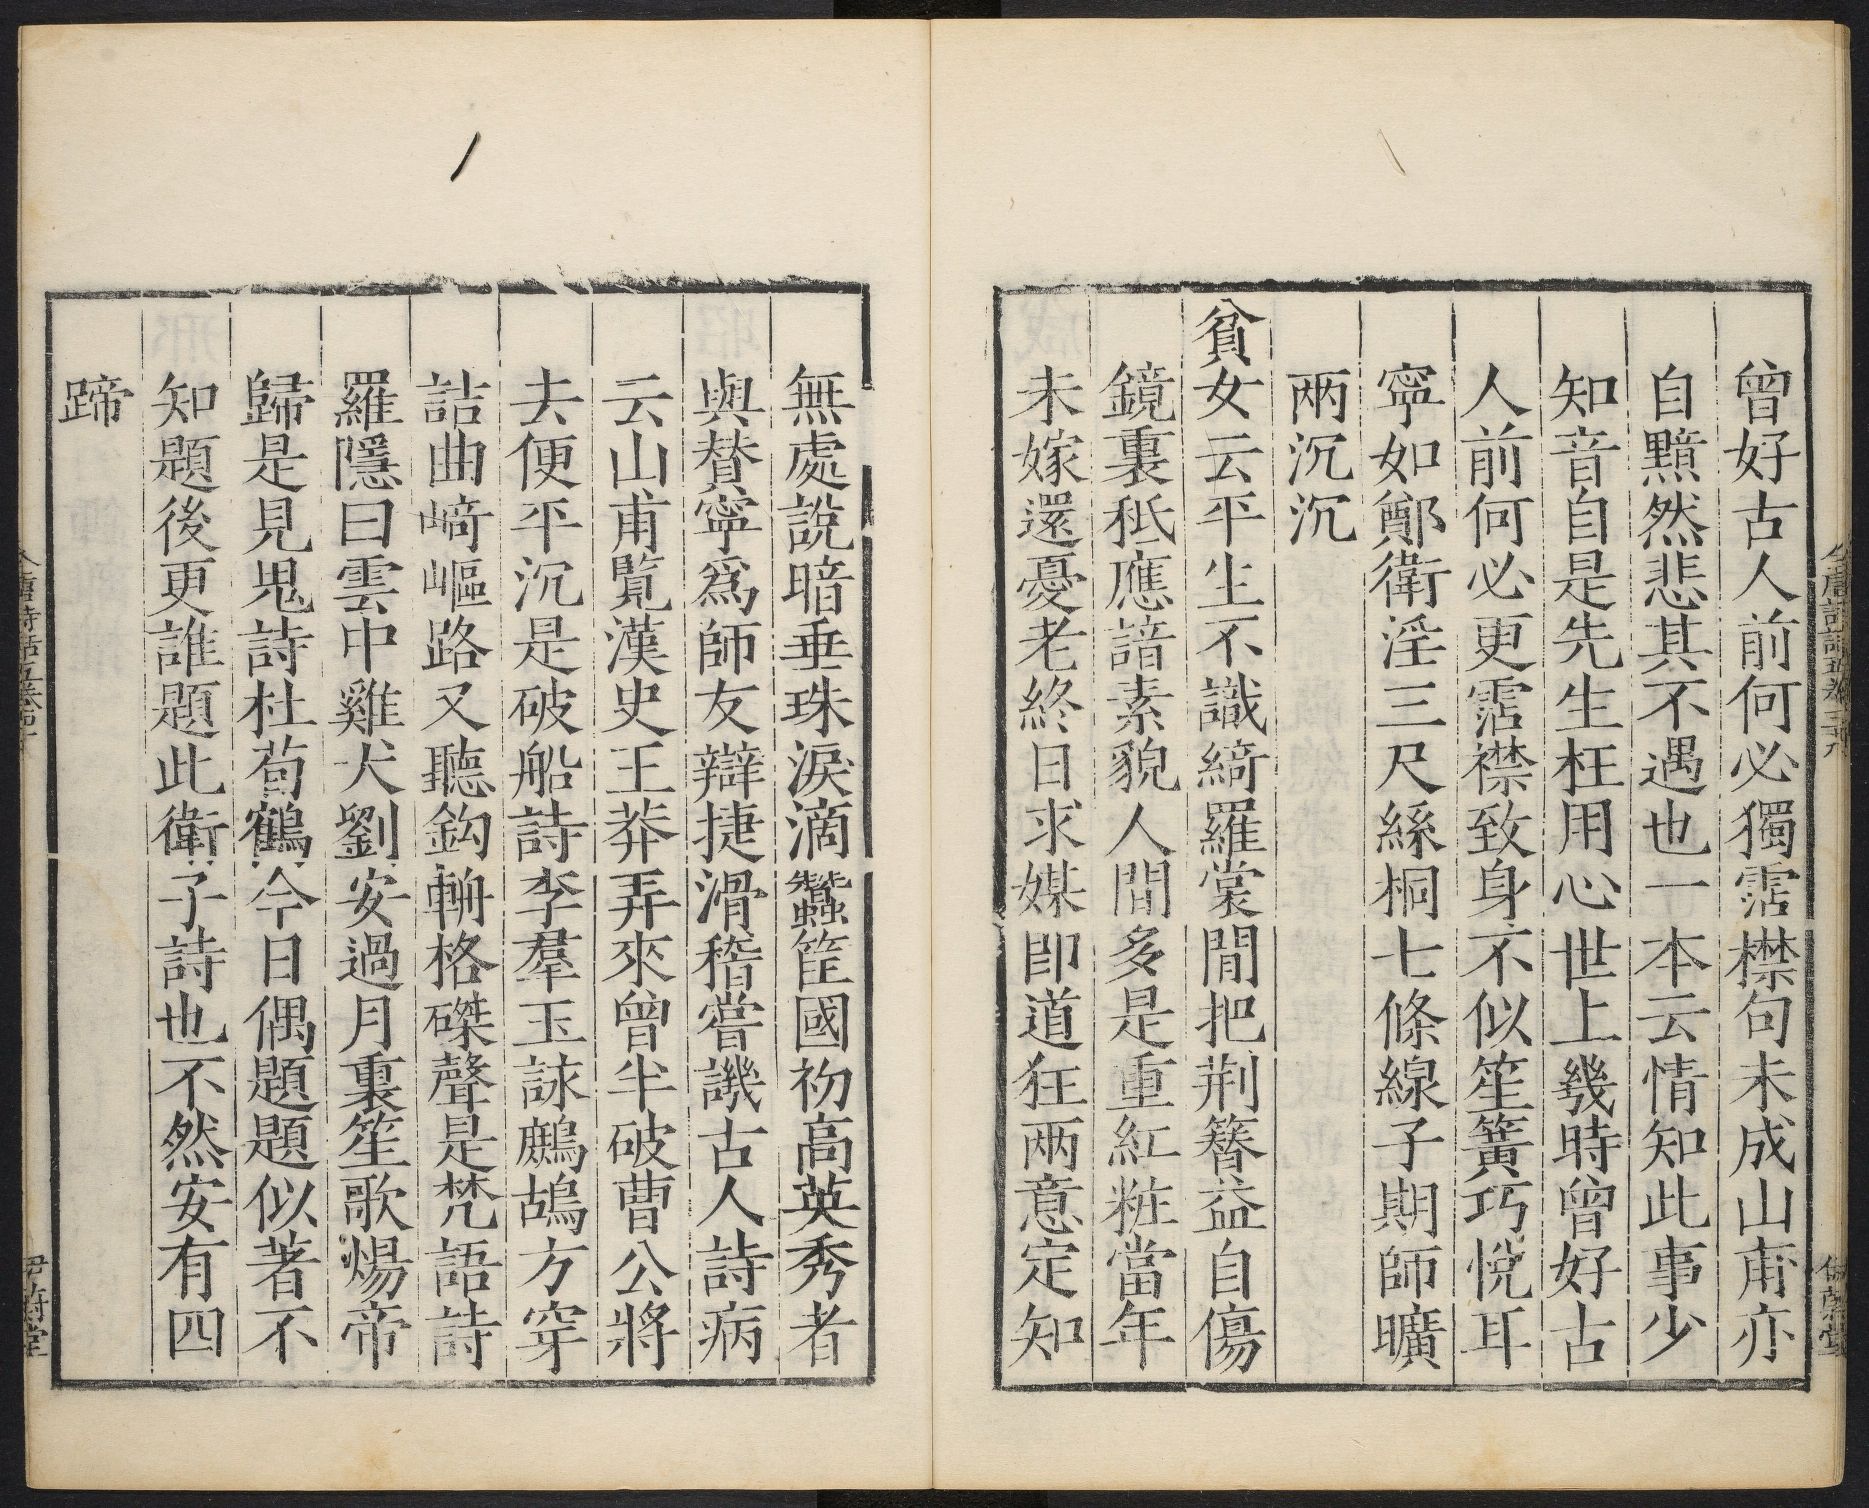 曾好古人前何必獨霑襟句未成山甫亦
自黯然悲其不遇也一本云情知此事少
知音自是先生枉用心世上幾時曾好古
人前何必更霑襟致身不似笙簧巧悅耳
寧如鄭衛淫三尺絲桐七條線子期師曠
兩沉沉
貧女云平生不識綺羅裳閒把荆簪益自傷
鏡裏秪應諳素貌人間多是重紅粧當年
未嫁還憂老終日求媒即道狂兩意定知
無處說暗垂珠淚滴蠶筐國初高英秀者
與贊寧爲師友辯捷滑稽嘗譏古人詩病
云山甫覽漢史王莽弄來曾半破曹公將
去便平沉是破船詩李羣玉詠鷓鴣方穿
詰曲崎嶇路又聽鈎輈格磔聲是梵語詩
羅隱曰雲中雞犬劉安過月裏笙歌煬帝
歸是見鬼詩杜荀鶴今日偶題題似著不
知題後更誰題此衛子詩也不然安有四
蹄
全唐詩話五卷